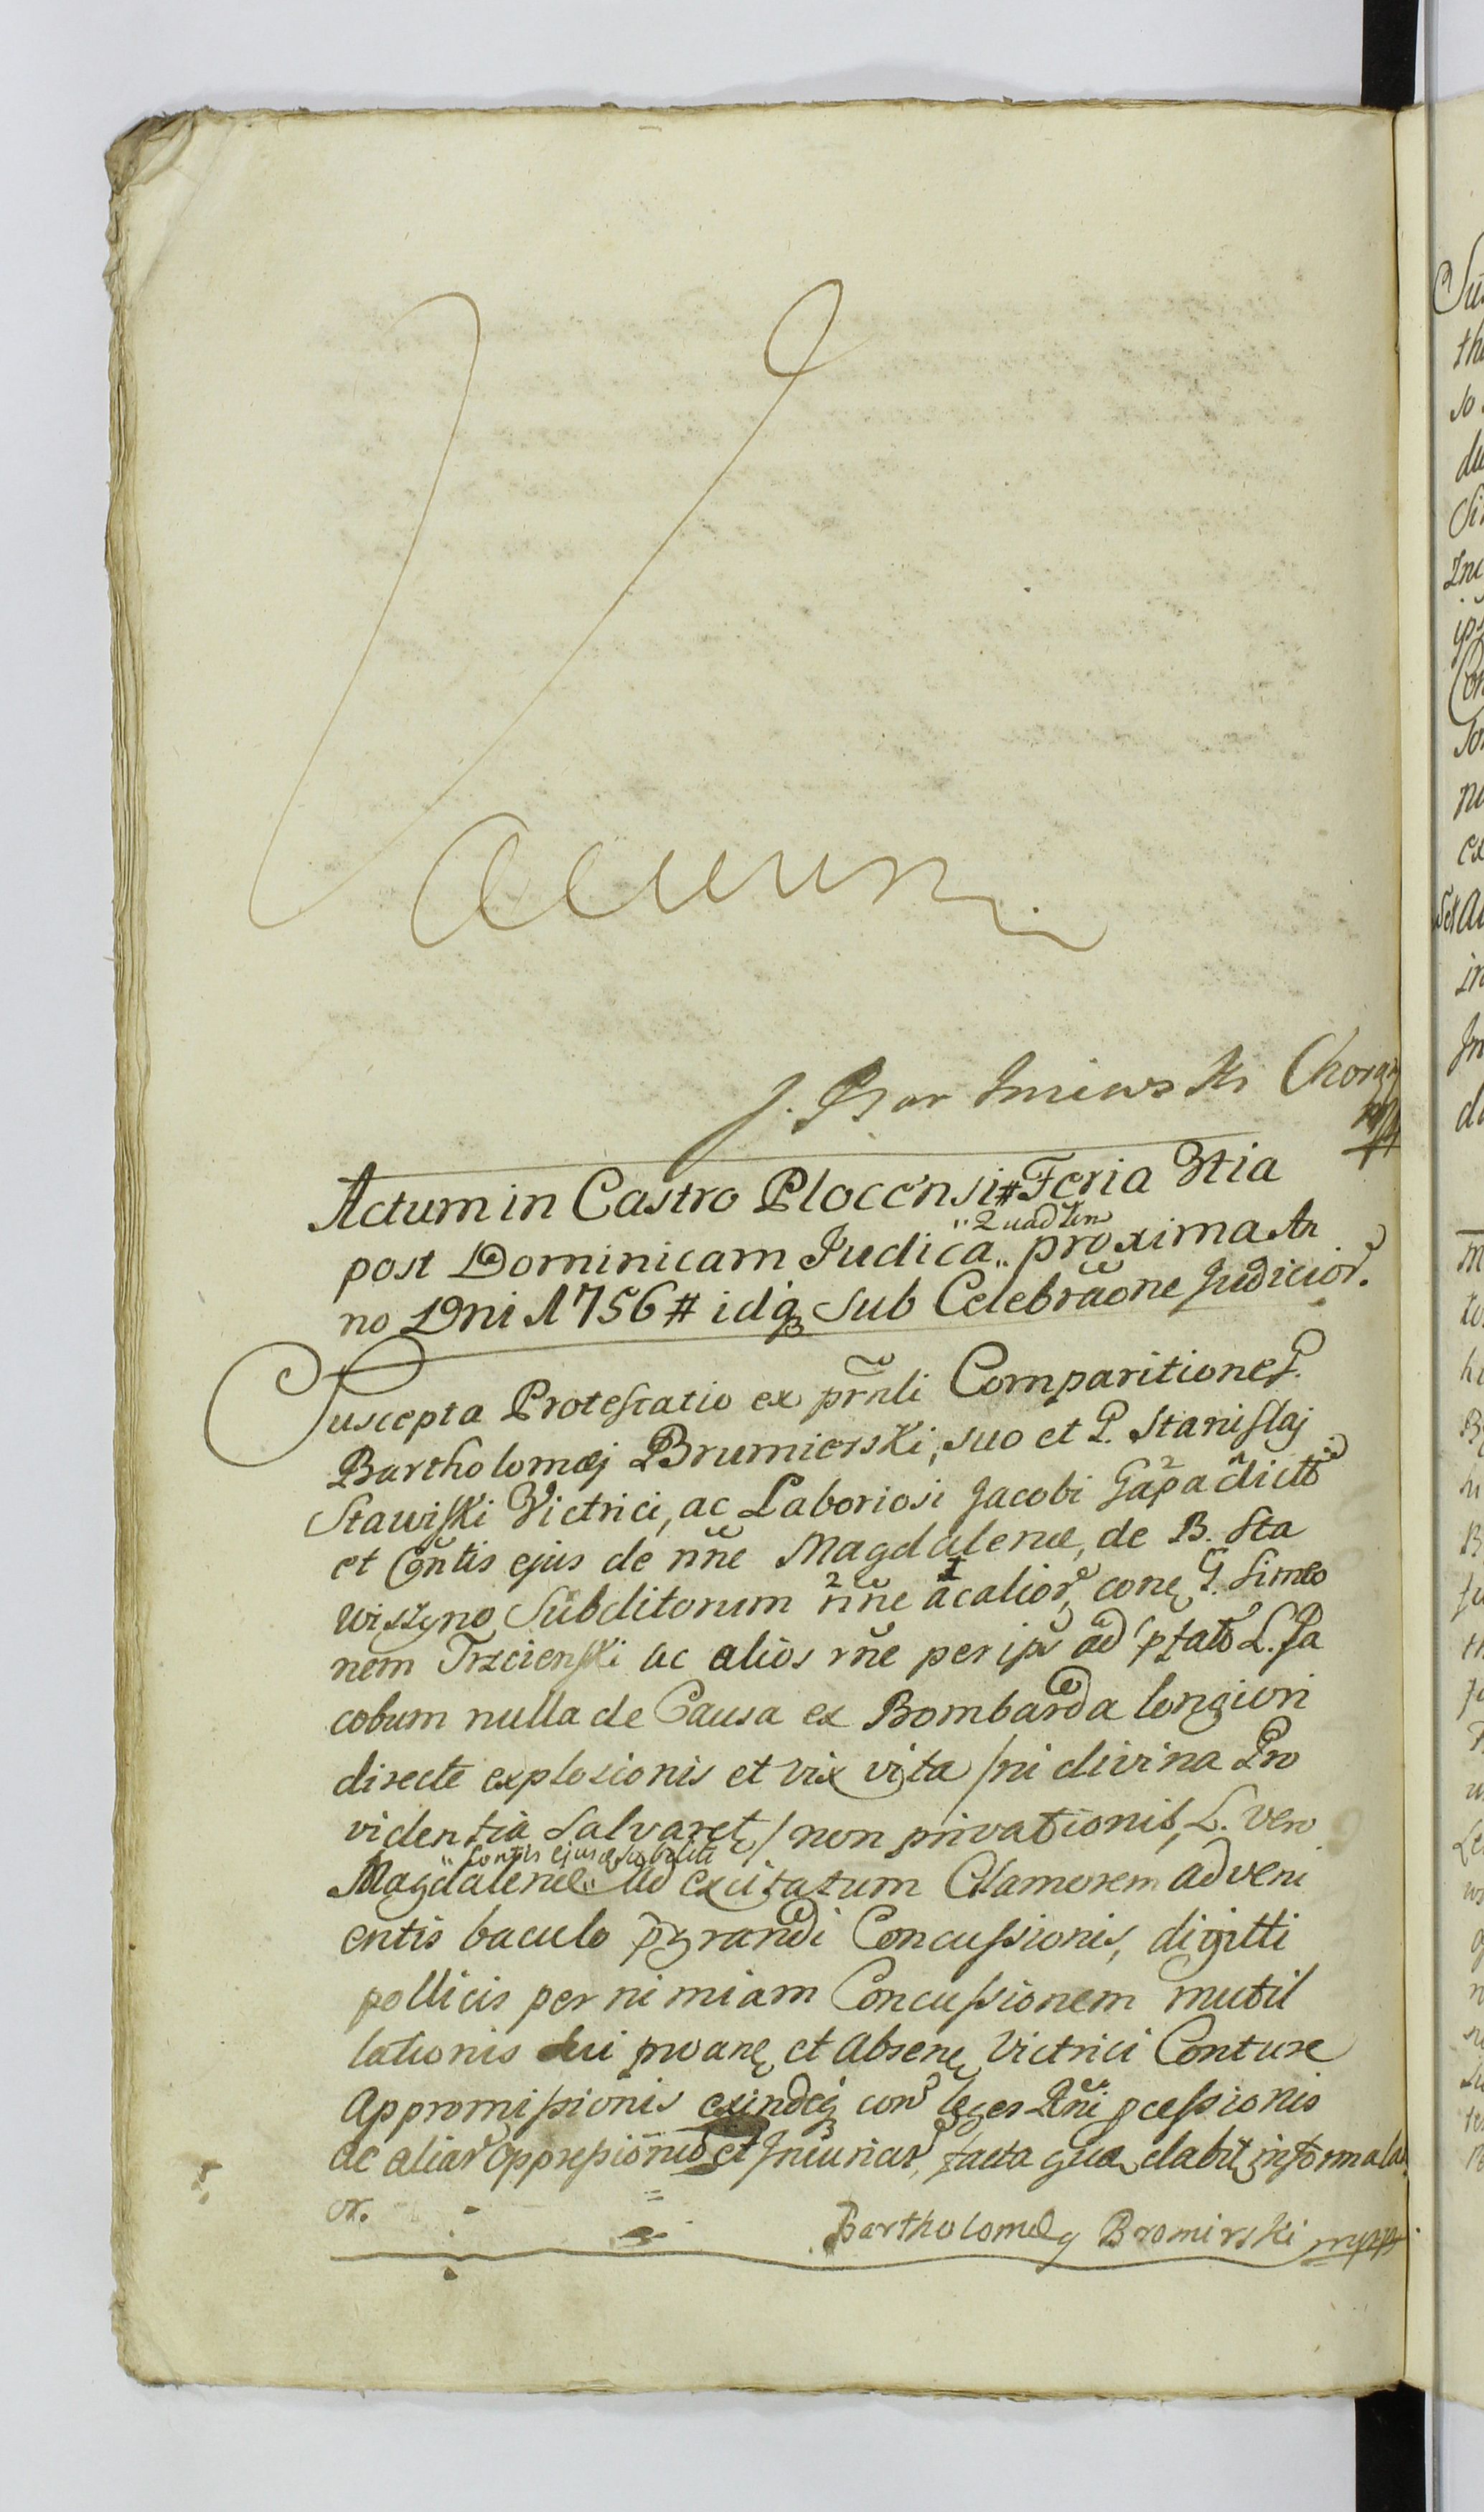 Vacuum.
Actum in Castro Plocensi # Feria 3tia
post Dominicam Judica „ Quadlem „ proxima An
no Dni 1756 # idq3 sub Celebraone Judicior.
Suscepta Protestatio ex prnli Comparitione G.
Bartholomæj Brumierski, suo et G. Stanislaj
Stawiski Victrici, ac Laboriosi Jacobi Gapa dicto
et Contis ejus de nne Magdalenæ, de B. Sta
wiszyno Subditorum nne ac alior, cone G. Simeo
nem Trzcienski ac alios rne per ips ad pfato L. Ja
cobum nulla de Causa ex Bombarda longiori
directe explosionis et vix vita / ni divina Pro
videntia Salvaret / non privationis, L. vero
Magdalenæ „ Contis ejus „ ad excitatum Clamorem adveni
entis baculo pgrandi Concussionis, digitti
pollicis per nimiam Concussionem mutil
lationis sui et Absen Victrici
Appromissionis exindeq3 con leges Rni pcessionis
ac aliar oppresionu et Injuriar, facta qua
or.
Bartholomæy Bromirski mpp